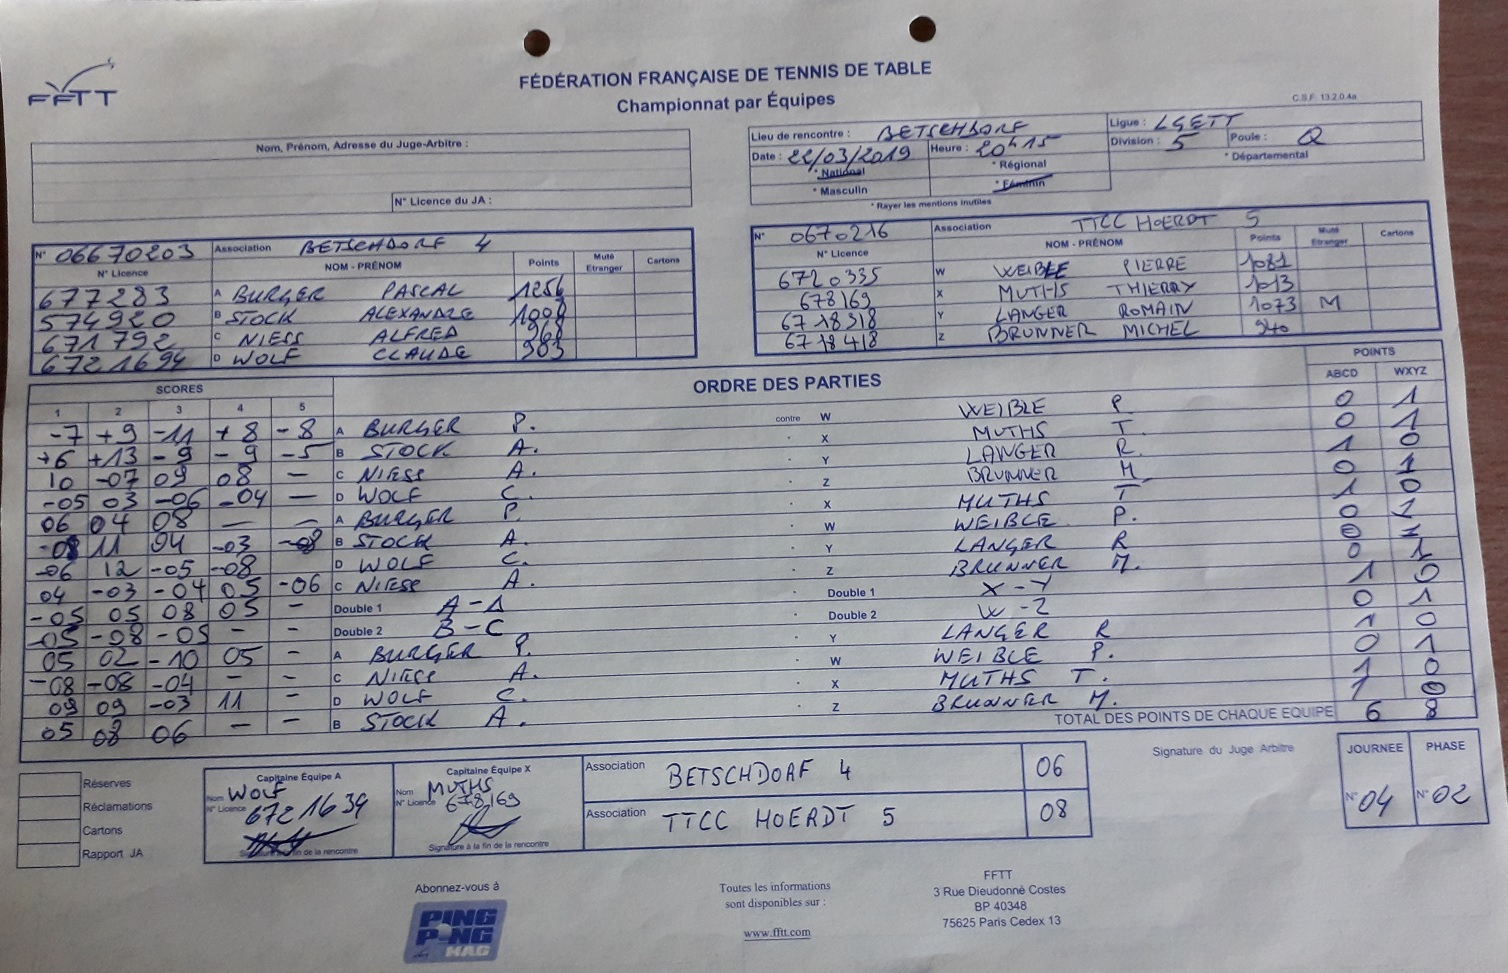 FFTT
FÉDÉRATION FRANÇAISE DE TENNIS DE TABLE
Championnat par Équipes
C.S.F. 13.2.0.4a
Nom, Prénom, Adresse du Juge-Arbitre :
N° Licence du JA :
Lieu de rencontre : BETSCHDORF Ligue : LGETT
Date : 22/03/2019 Heure : 20h15 Division : 5 Poule : Q
* National * Régional * Départemental
* Masculin * Féminin
* Rayer les mentions inutiles
N° 06670203 Association BETSCHDORF 4
N° Licence NOM - PRÉNOM Points Muté Etranger Cartons
677283 A BURGER PASCAL 1254
574920 B STOCK ALEXANDRE
671792 C NIESS ALFRED 968
6721694 D WOLF CLAUDE 903
N° 0670216 Association TTCC HOERDT 5
N° Licence NOM - PRÉNOM Points Muté Etranger Cartons
6720335 W WEIBLE PIERRE 1081
678169 X MUTHS THIERRY 1013
6718318 Y LANGER ROMAIN 1073 M
6718418 Z BRUNNER MICHEL 940
SCORES ORDRE DES PARTIES POINTS
1 2 3 4 5 ABCD WXYZ
-7 +9 -11 +8 -8 A BURGER P. contre W WEIBLE P 0 1
+6 +13 -9 -9 -5 B STOCK A. X MUTHS T. 0 1
10 -07 09 08 - C NIESS A. Y LANGER R. 1 0
-05 03 -06 -04 - D WOLF C. Z BRUNNER M 0 1
06 04 08 - - A BURGER P. X MUTHS T 1 0
-08 11 04 -03 -08 B STOCK A. W WEIBLE P. 0 1
-06 12 -05 -08 D WOLF C. Y LANGER R 0 1
04 -03 -04 05 -06 C NIESS A. Z BRUNNER M. 0 1
-05 05 08 05 - Double 1 Double 1 X-Y 1 0
-05 -08 -05 - - Double 2 B-C Double 2 W-Z 0 1
05 02 -10 05 - A BURGER P. Y LANGER R 1 0
-08 -08 -04 - - C NIESS A. W WEIBLE P. 0 1
09 09 -03 11 - D WOLF C. X MUTHS T. 1 0
05 08 06 - - B STOCK A. Z BRUNNER M. 1 0
TOTAL DES POINTS DE CHAQUE EQUIPE 6 8
Réserves
Réclamations
Cartons
Rapport JA
Capitaine Équipe A
Nom WOLF
N° Licence 6721639
Signature à la fin de la rencontre
Capitaine Équipe X
Nom MUTHS
N° Licence 678169
Signature à la fin de la rencontre
Association BETSCHDORF 4 06
Association TTCC HOERDT 5 08
Signature du Juge Arbitre
JOURNEE PHASE
N° 04 N° 02
Abonnez-vous à
PING PONG MAG
Toutes les informations
sont disponibles sur :
www.fftt.com
FFTT
3 Rue Dieudonné Costes
BP 40348
75625 Paris Cedex 13